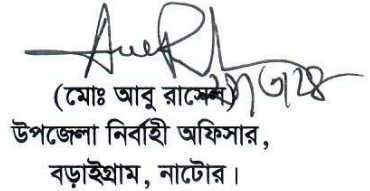 (মোঃ আবু রাসেল)
উপজেলা নির্বাহী অফিসার,
বড়াইগ্রাম, নাটোর।